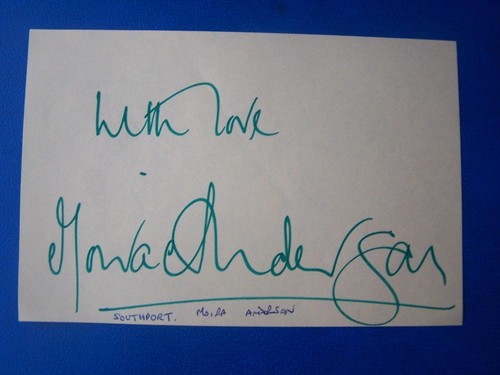 With love
Moira Anderson
SOUTHPORT. MOIRA ANDERSON